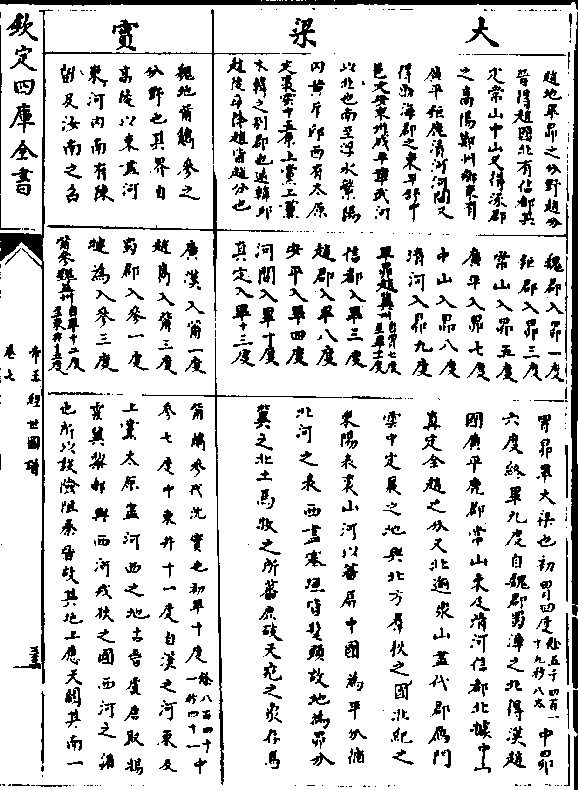 大梁
趙地昴畢之分野趙分
晉得趙國北有信都真
定常山中山又得涿郡
之高陽鄚州鄉東有
廣平鉅鹿清河河間又
得渤海郡之東平舒中
邑文安東州成平章武河
以北也南至浮水繁陽
内黄斥邱西有太原
定襄雲中五原上黨上黨
本韓之别郡也逺韓近
趙後卒降趙皆趙分也
魏郡入昴一度
鉅郡入昴三度
常山入昴五度
廣平入昴七度
中山入昴八度
清河入昴九度
畢昴趙冀州自胃七度至畢十一度
信都入畢三度
趙郡入畢八度
安平入畢四度
河間入畢十度
真定入畢十三度
胃昴畢大梁也初胃四度餘五千四百一十九秒八太中昴
六度終畢九度自魏郡濁漳之北得漢趙
國廣平鹿郡常山東及清河信都北據中山
真定全趙之分又北逾衆山盡代郡鴈門
雲中定襄之地與北方羣狄之國北紀之
東陽表裏山河以蕃屏中國為平分循
北河之表西盡塞垣皆髦頭故地為昴分
冀之北土馬牧之所蕃庶故天苑之象存焉
實
魏地觜觿參之
分野也其界自
高陵以東盡河
東河内南有陳
留及汝南之召
廣漢入觜一度
越嶲入觜三度
蜀郡入參一度
犍為入參三度
觜參魏益州自畢十二度至東井十五度
觜觿參伐沈實也初畢十度餘八百四十一秒四十一中
參七度中東井十一度自漢之河東及
上黨太原盡河西之地古晉虞唐耿揚
霍冀黎郇與西河戎狄之國西河之濱
也所以設險阻秦晉故其地上應天闕其南一
欽定四庫全書
帝王經世圖譜
卷七